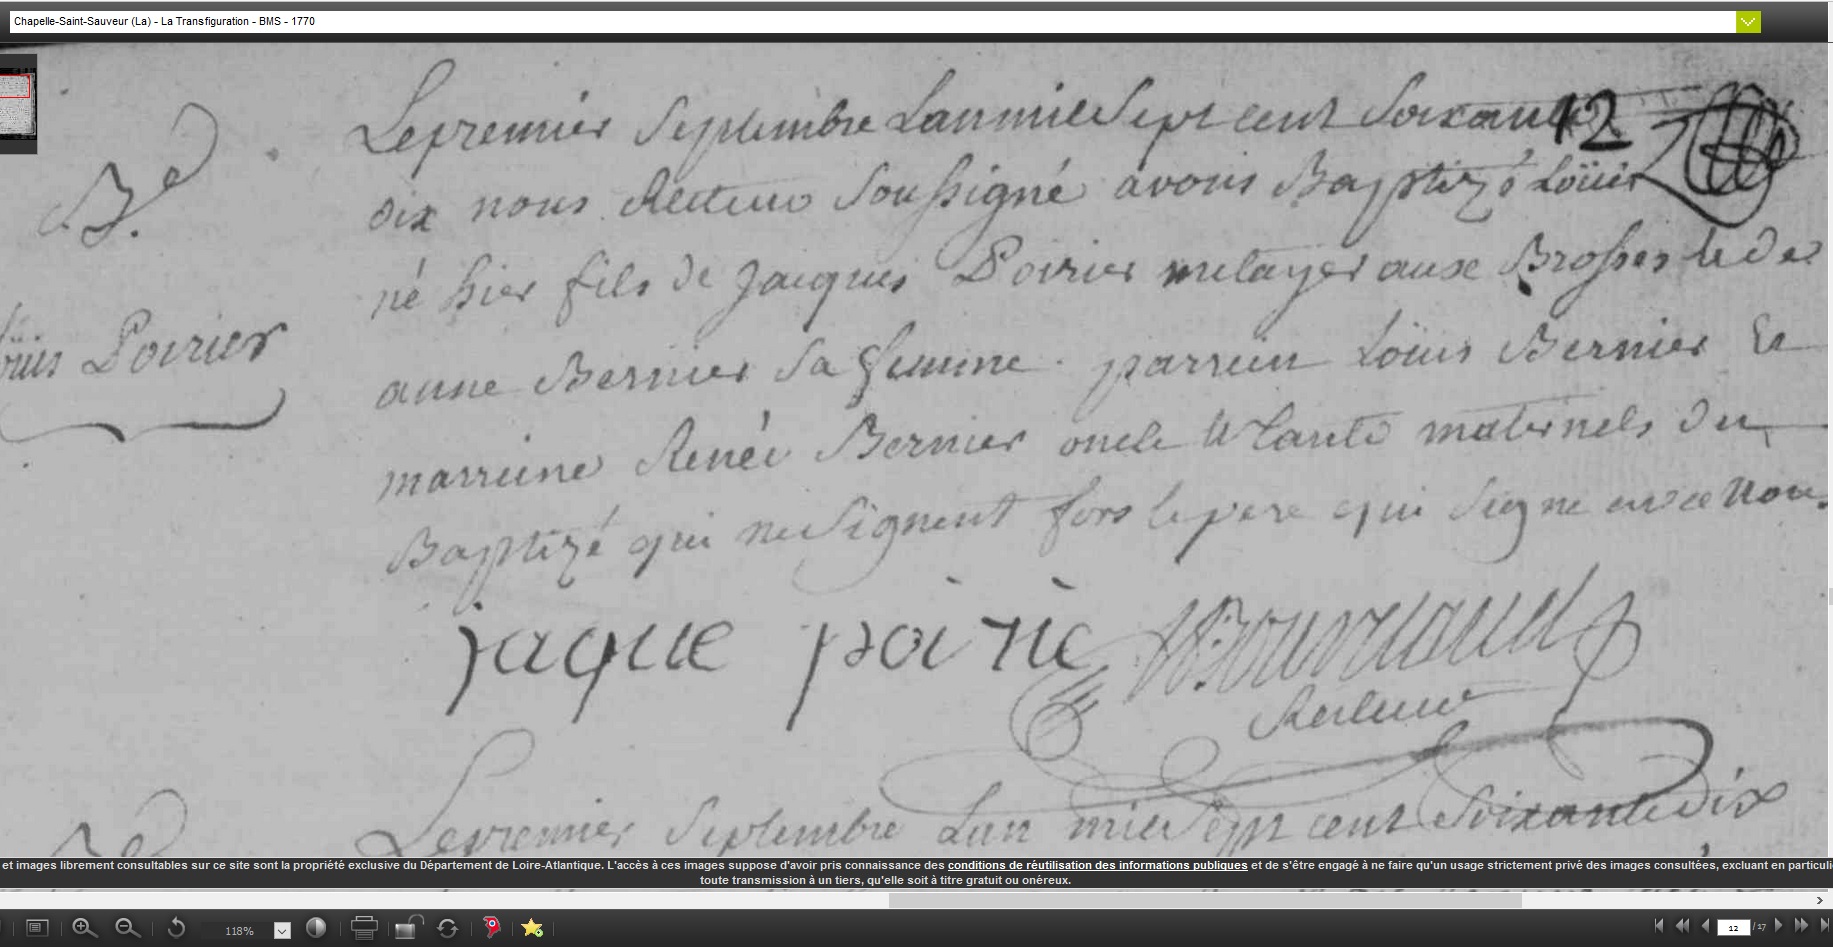 Chapelle-Saint-Sauveur (La) - La Transfiguration - BMS - 1770
Le premier Septembre Lan mil Sept cent Soixante 12
dix nous Recteur Soussigné avons Baptizé Loüis
né hier fils de Jacques Poirier metayer aux Brosses et de
anne Bernier Sa femme . parrein Loüis Bernier Et
marreine Renée Bernier oncle et tante maternels du
Baptizé qui ne Signent fors le pere qui Signe avec Nous
B.
Loüis Poirier
jaque poirie
Recteur
Le premier Septembre Lan mil Sept cent Soixante dix
et images librement consultables sur ce site sont la propriété exclusive du Département de Loire-Atlantique. L'accès à ces images suppose d'avoir pris connaissance des conditions de réutilisation des informations publiques et de s'être engagé à ne faire qu'un usage strictement privé des images consultées, excluant en particuli
toute transmission à un tiers, qu'elle soit à titre gratuit ou onéreux.
118%
12 / 17